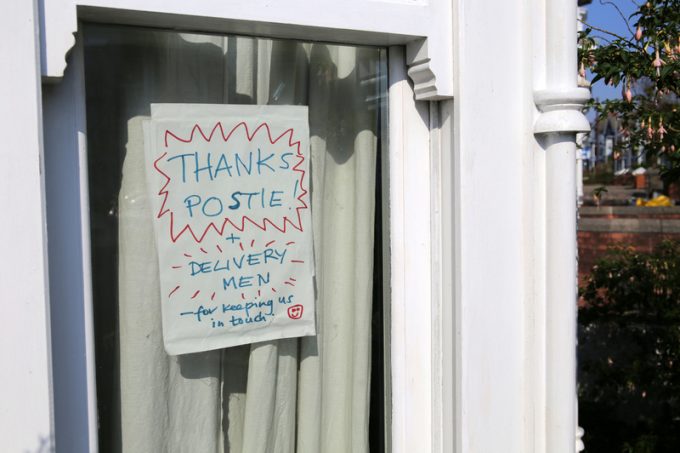 THANKS
POSTIE!
+
DELIVERY
MEN
- for keeping us
in touch